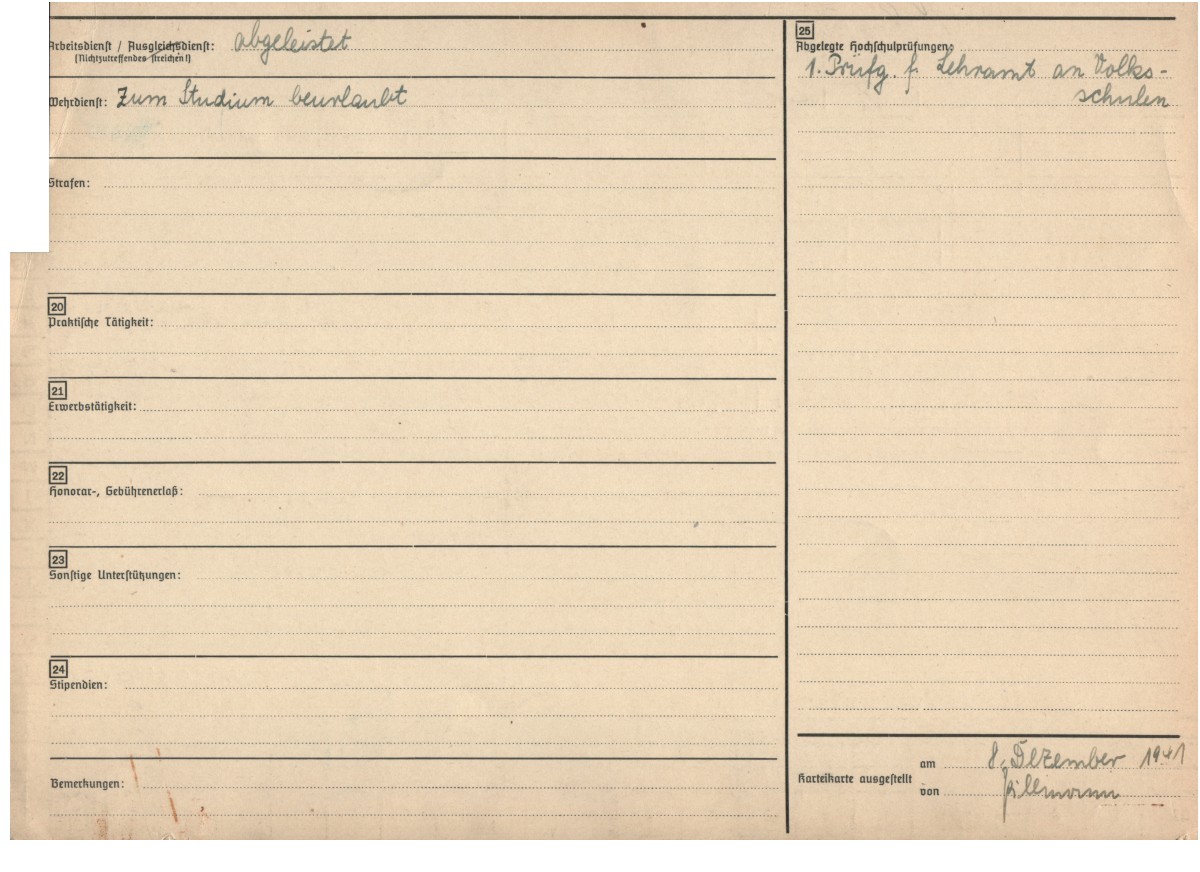 Arbeitsdienst / Ausgleichsdienst: abgeleistet
(Nichtzutreffendes streichen!)
Wehrdienst: Zum Studium beurlaubt
Strafen:
20
Praktische Tätigkeit:
21
Erwerbstätigkeit:
22
Honorar-, Gebührenerlaß:
23
Sonstige Unterstützungen:
24
Stipendien:
Bemerkungen:
25
Abgelegte Hochschulprüfungen:
1. Prüfg. f. Lehramt an Volks-
schulen
am 8. Dezember 1941
Karteikarte ausgestellt
von